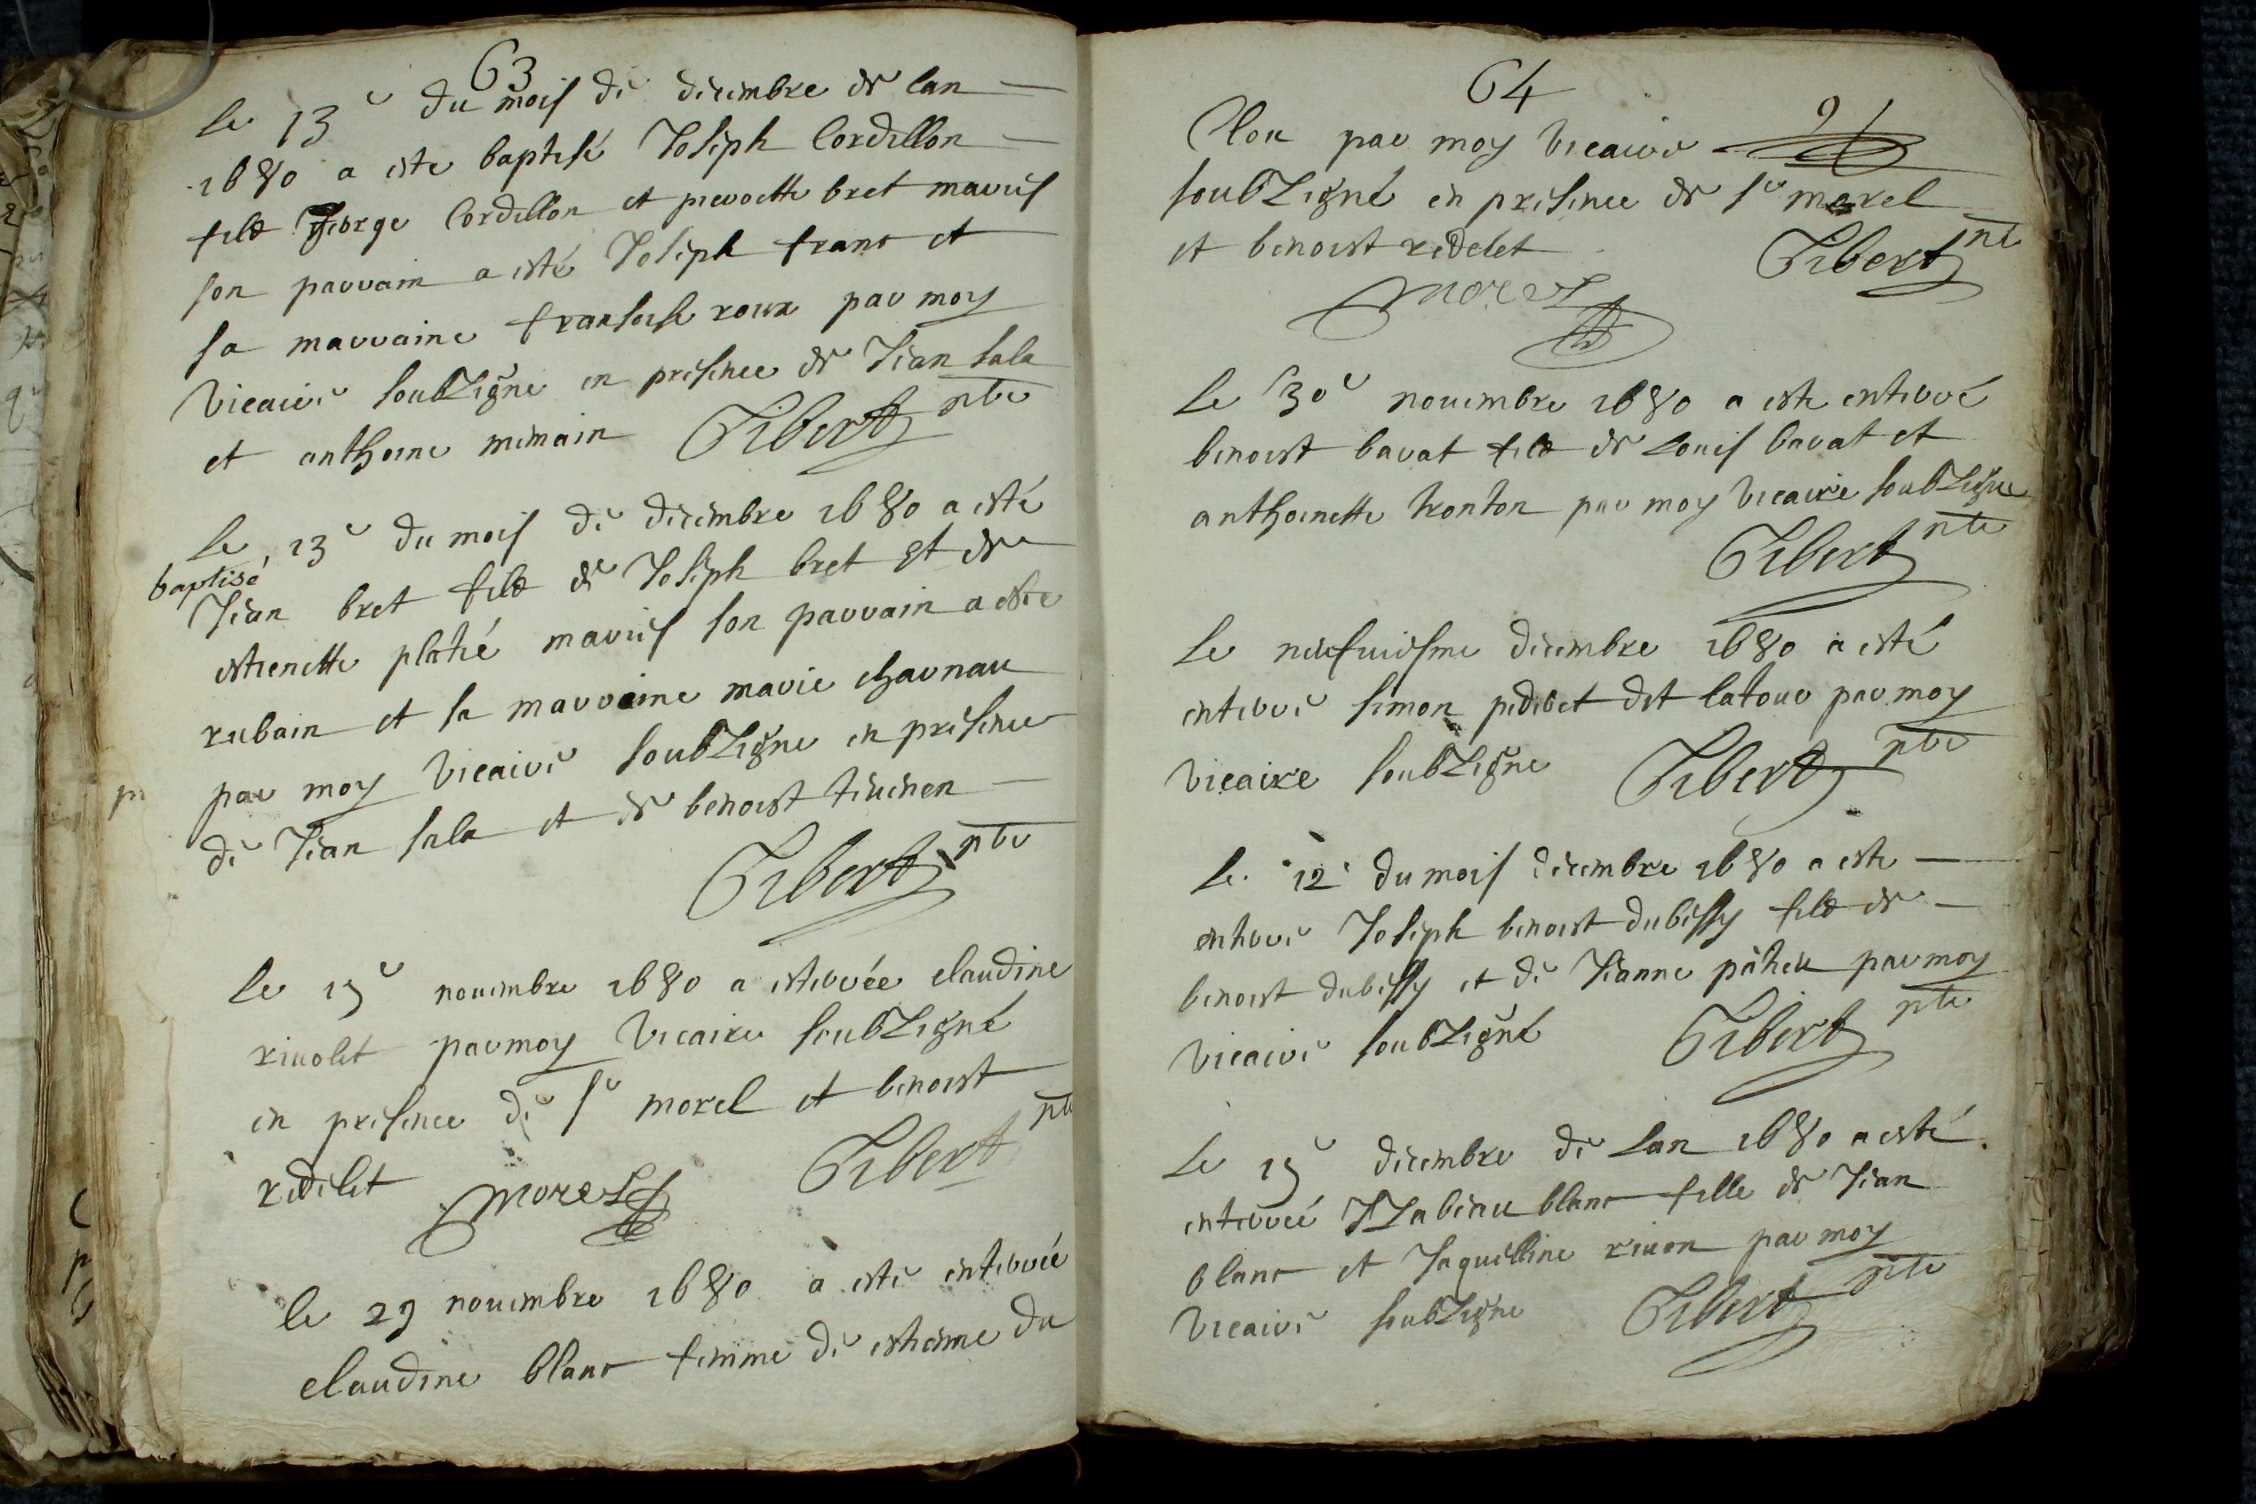 63
le 13e du mois de decembre de lan
1680 a este baptisé Joseph Cordillon
filz George Cordillon et pierrette bret mariés
son parrain a esté Joseph franc et
sa marraine fransoise roux par moy
vicaire soubzigne en presence de Jean sala
et anthoine mimain Gibert pbre
le 13e du mois de decembre 1680 a esté
baptisé
Jean bret filz de Joseph bret et de
estienette platié mariés son parrain a este
rubain et sa marraine marie charnau
par moy vicaire soubzigne en presence
de Jean sala et de benoist
Gibert pbre
le 15e nouembre 1680 a esterrée claudine
riuolet par moy vicaire soubzigné
en presence de sr morel et benoist
ridelet morel Gibert pbre
le 29 nouembre 1680 a este enterrée
claudine blanc femme de estieinne du
64
91
Clou par moy vicaire
soubzigné en presence de sr morel
et benoist ridelet Gibert pbre
morel
le 30e nouembre 1680 a este enterré
benoist barat filz de Louis barat et
anthoinette tronton par moy vicaire soubzigne
Gibert pbre
le neufuiesme decembre 1680 a esté
enterre simon pedibet dit latour par moy
vicaire soubzigne Gibert pbre
le 12 du mois decembre 1680 a este
enterre Joseph benoist dubessy filz de
benoist dubessy et de Jeanne par moy
vicaire soubzigné Gibert pbre
le 15e decembre de lan 1680 a esté
enterreé Yzabeau blanc fille de Jean
blanc et Jaquelline riuon par moy
vicaire soubzigne Gibert pbre